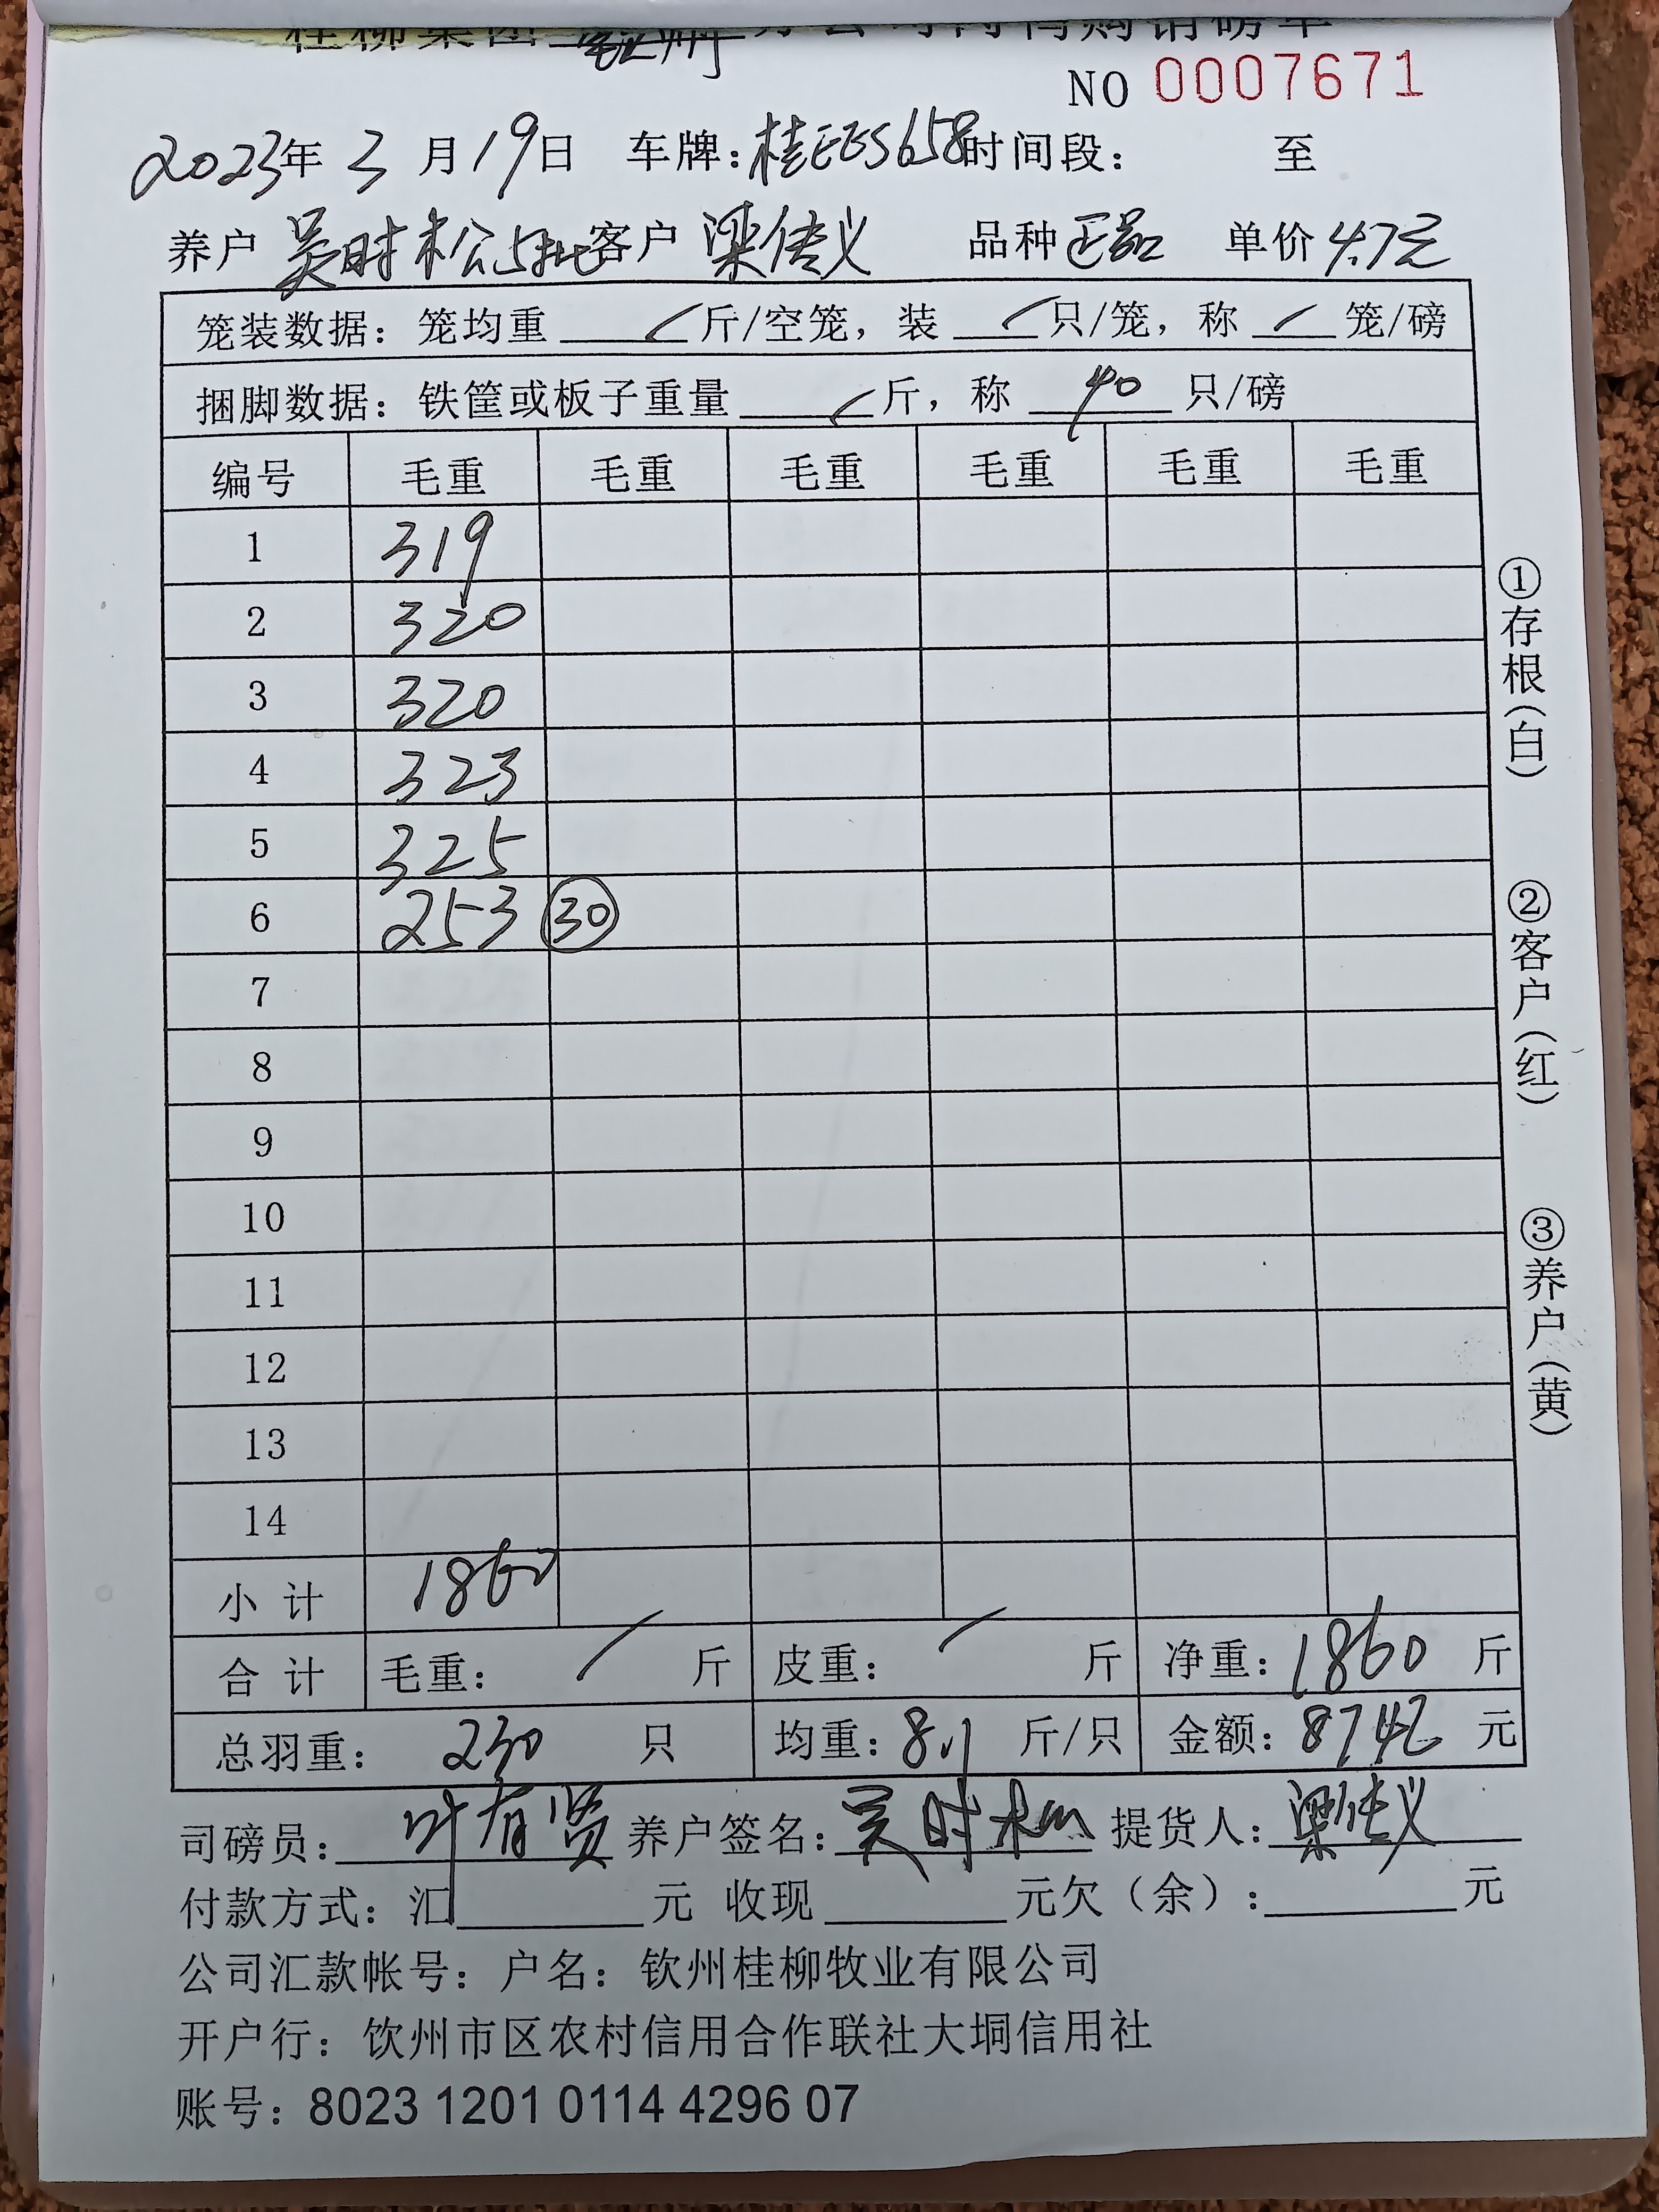 桂柳集团 钦州 分公司肉鸭购销磅单
NO 0007671
2023年 3 月 19 日 车牌:桂EES658 时间段: 至
养户 吴时木公5批 客户 梁传义 品种 正品 单价 4.7元
笼装数据: 笼均重 / 斤/空笼, 装 / 只/笼, 称 / 笼/磅
捆脚数据: 铁筐或板子重量 / 斤, 称 40 只/磅
编号 毛重 毛重 毛重 毛重 毛重 毛重
1 319
2 320
3 320
4 323
5 325
6 253 30
7
8
9
10
11
12
13
14
小计 1860
合计 毛重: / 斤 皮重: / 斤 净重: 1860 斤
总羽重: 230 只 均重: 8.1 斤/只 金额: 8742 元
司磅员: 叶有贤 养户签名: 吴时松 提货人: 梁传义
付款方式: 汇 元 收现 元欠(余): 元
公司汇款帐号: 户名: 钦州桂柳牧业有限公司
开户行: 钦州市区农村信用合作联社大垌信用社
账号: 8023 1201 0114 4296 07
①存根(白)
②客户(红)
③养户(黄)